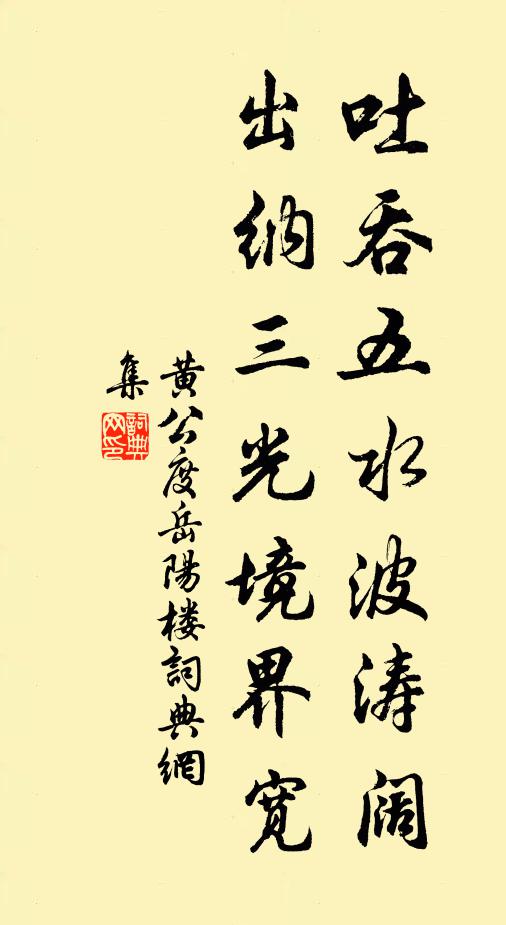 吐吞五水波涛阔
出纳三光境界宽
黄公度岳陽楼詞典網
集
詞典网印